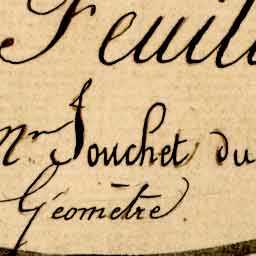 Feuill
Mr Jouchet du
Géomètre.